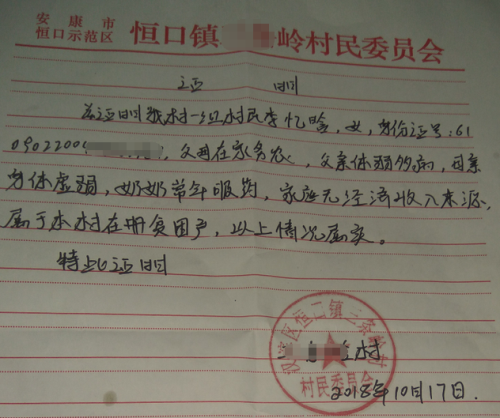 安康市
恒口示范区 恒口镇 岭村民委员会
证 明
兹证明我村一组村民李忆 ，女，身份证号：61
0902200 ，父母在家务农，父亲体弱多病，母亲
身体虚弱，奶奶常年服药，家庭无经济收入来源，
属于本村在册贫困户，以上情况属实。
特此证明
汉滨区恒口镇三条岭村
村民委员会
村
2018年10月17日.